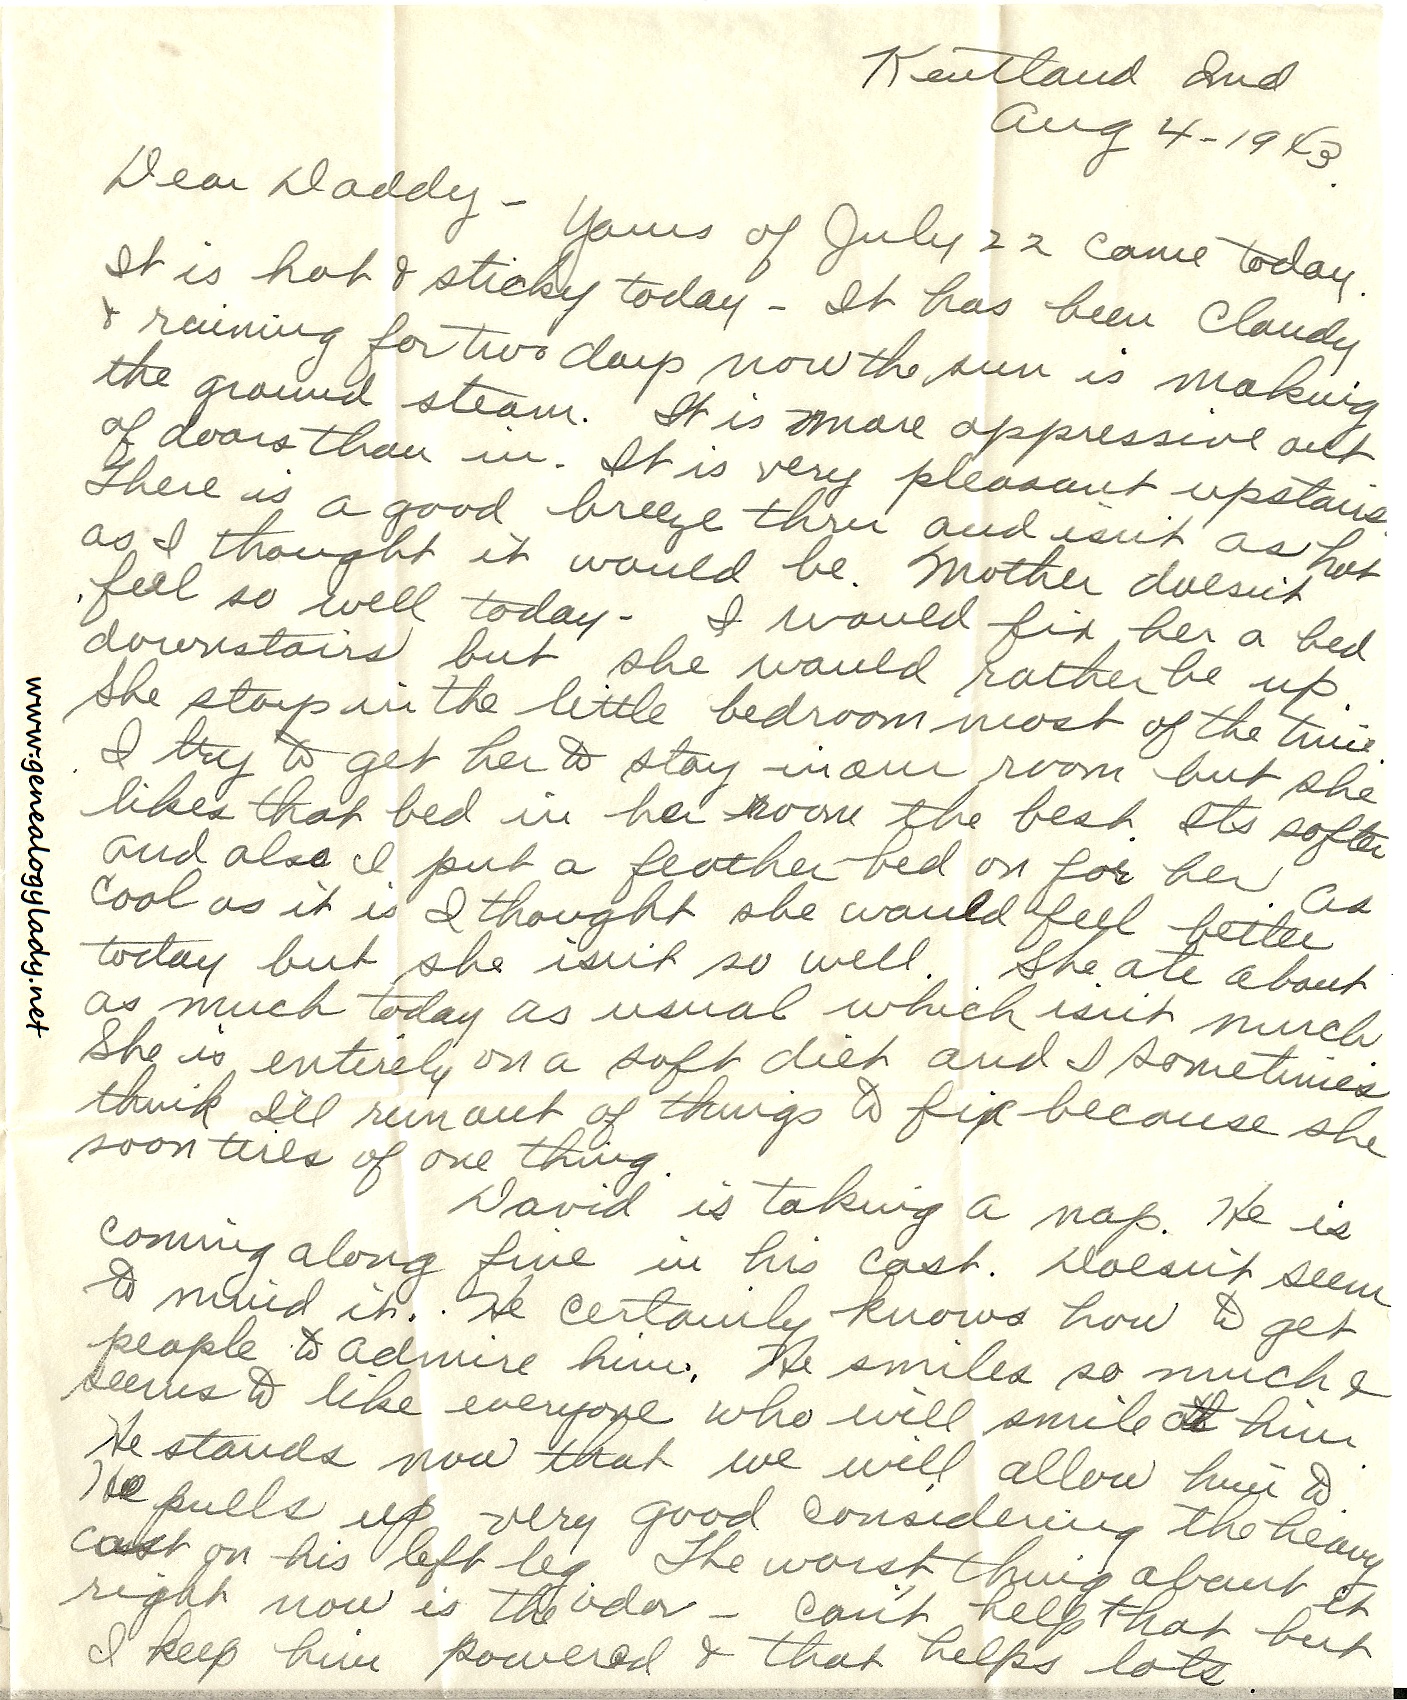 Kentland Ind
Aug 4-1943.
Dear Daddy -
Yours of July 22 came today.
It is hot & sticky today - It has been cloudy
& raining for two days now the sun is making
the ground steam. It is more oppressive out
of doors than in. It is very pleasant upstairs
There is a good breeze thru and isn't as hot
as I thought it would be. Mother doesn't
feel so well today - I would fix her a bed
downstairs but she would rather be up
She stays in the little bedroom most of the time
I try to get her to stay in our room but she
likes that bed in her room the best. Its softer
and also I put a feather bed on for her. As
cool as it is I thought she would feel better
today but she isn't so well. She ate about
as much today as usual which isn't much
She is entirely on a soft diet and I sometimes
think I'll run out of things to fix because she
soon tires of one thing.
David is taking a nap. He is
coming along fine in his cast. Doesn't seem
to mind it. He certainly knows how to get
people to admire him. He smiles so much &
seems to like everyone who will smile at him
He stands now that we will allow him to.
He pulls up very good considering the heavy
cast on his left leg. The worst thing about it
right now is the odor - can't help that but
I keep him powered & that helps lots.
www.genealogylady.net